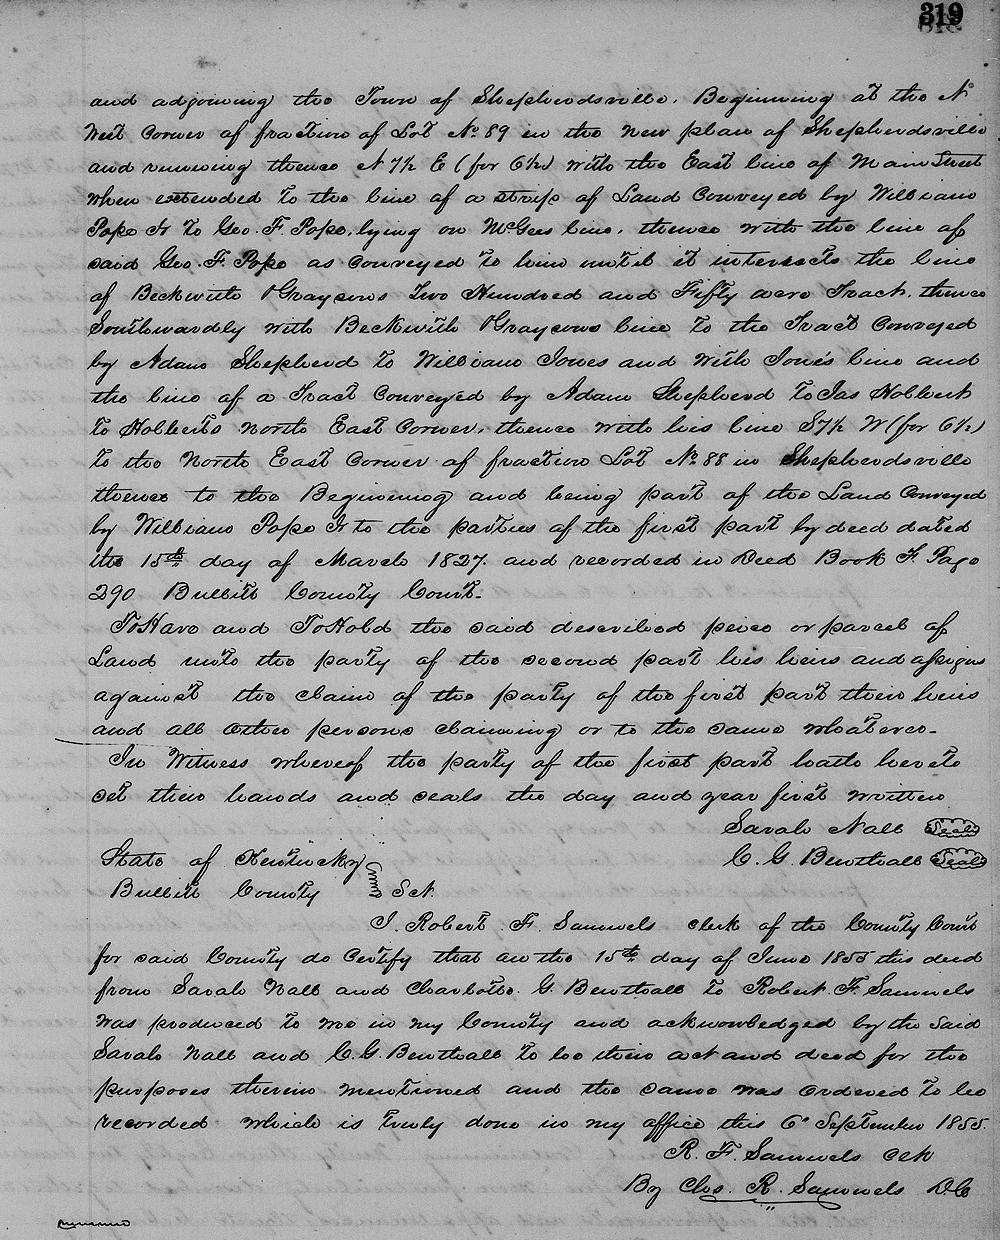 319
and adjoining the Town of Shepherdsville. Beginning at the N
West Corner of fraction of Lot No 89 in the new plan of Shepherdsville
and running thence N 7½ E (for 6½) with the East line of Main Street
when extended to the line of a strip of Land Conveyed by William
Pope Jr to Geo. F. Pope, lying on McGees line, thence with the line of
said Geo. F. Pope as conveyed to him until it intersects the line
of Beckwith & Graysons Two Hundred and Fifty acre Tract, thence
Southwardly with Beckwith & Graysons line to the Tract Conveyed
by Adam Shepherd to William Jones and with Jones line and
the line of a Tract Conveyed by Adam Shepherd to Jas Holbert
to Holberts North East Corner, thence with his line S 7½ W (for 6½)
to the North East Corner of fraction Lot No 88 in Shepherdsville
thence to the Beginning and being part of the Land Conveyed
by William Pope Jr to the parties of the first part by deed dated
the 15th day of March 1827. and recorded in Deed Book F. Page
290 Bullitt County Court.
To Have and To Hold the said described peice or parcel of
Land unto the party of the second part his heirs and assigns
against the claim of the party of the first part their heirs
and all other persons claiming or to the same whatever.
In Witness whereof the party of the first part hath hereto
set their hands and seals the day and year first written
Sarah Nall Seal
C. G. Benthall Seal
State of Kentucky
Bullitt County } Sct.
I. Robert. F. Samuels clerk of the County Court
for said County do Certify that on the 15th day of June 1855 this deed
from Sarah Nall and Charlotte. G. Benthall to Robert. F. Samuels
was produced to me in my County and acknowledged by the said
Sarah Nall and C. G. Benthall to be their act and deed for the
purposes therein mentioned and the same was ordered to be
recorded which is truly done in my office this 6" September 1855.
R. F. Samuels Clk
By Chs. R. Samuels D.C